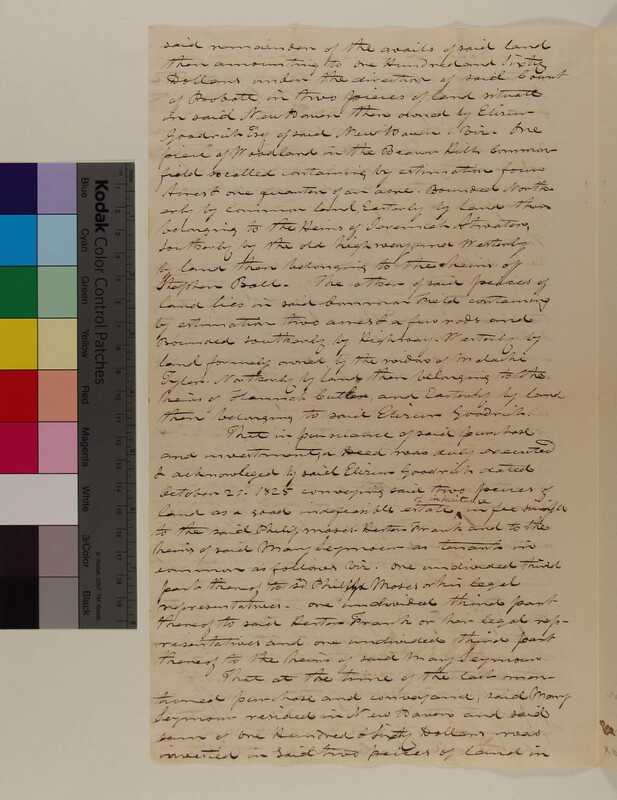 said remainder of the avails of said land
then amounting to one Hundred and Sixty
Dollars under the direction of said Court
of Probate, in two pieces of land situate
in said New Haven then owned by Elizur
Goodrich Esq of said New Haven. Viz. One
piece of Woodland in the Beaver Hills Common
field so called containing by estimation four
Acres & one quarter of an acre. Bounded North-
erly by common land, Easterly by land then
belonging to the Heirs of Jeremiah Atwater,
Southerly by the old highway, and Westerly
by land then belonging to the heirs of
Stephen Ball. The other of said pieces of
land lies in said Common field containing
by estimation two acres & a few rods and
Bounded Southerly by Highway, Westerly by
land formerly owned by the widow of Malachi
Tyler. Northerly by land then belonging to the
heirs of Hannah Cutler, and Easterly by land
then belonging to said Elizur Goodrich.
That in pursuance of said purchase
and investment, a Deed was duly executed
& acknowleged by said Elizur Goodrich dated
October 27. 1825 conveying said two pieces of
land as a good indefeasible estate of inheritance in fee simple
to the said Philip Moses, Hector Frank and to the
heirs of said Mary Seymour as tenants in
common as follows Viz. one undivided third
part thereof to sd Philip Moses or his legal
representatives. one undivided third part
thereof to said Hector Frank or her legal rep-
resentatives and one undivided third part
thereof to the heirs of said Mary Seymour
That at the time of the last men-
tioned purchase and conveyance, said Mary
Seymour resided in New Haven and said
sum of one Hundred & Sixty Dollars was
invested in said two pieces of land in
Kodak Color Control Patches
Blue
Cyan
Green
Yellow
Red
Magenta
White
3/Color
Black